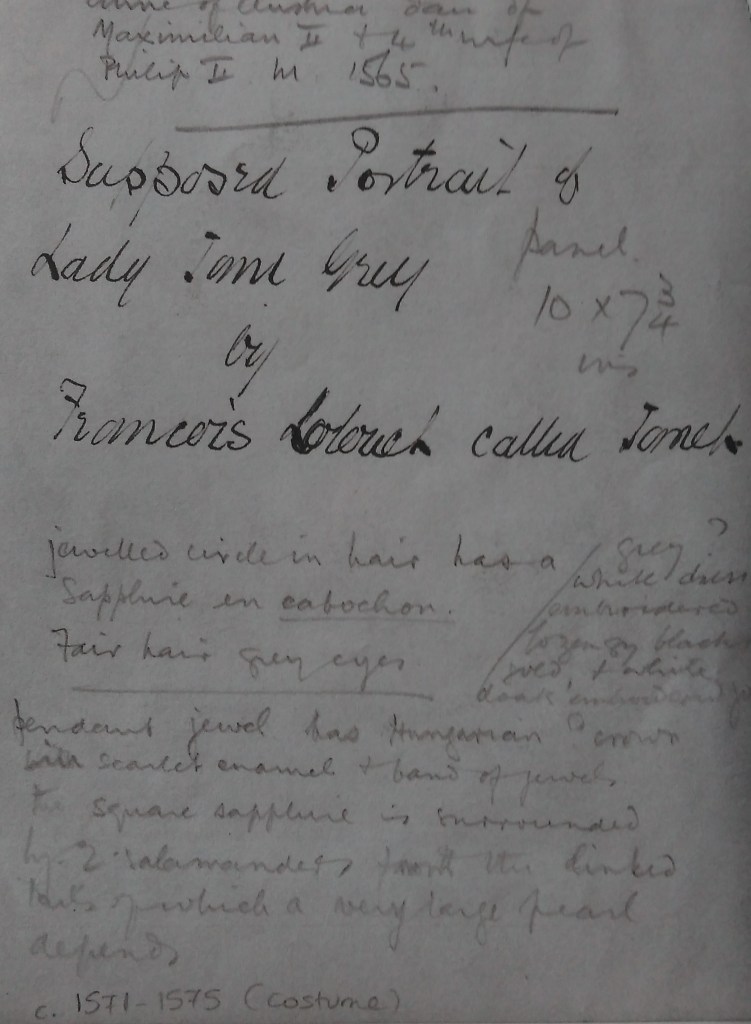 Anne of Austria dau of
Maximilian II + 4th wife of
Philip II m 1565.
Supposed Portrait of
Lady Jane Grey
panel.
10 x 7 3/4
ins
by
Francois Clouet called Janet
jewelled circle in hair has a
Sapphire en cabochon.
Fair hair grey eyes
grey ?
white dress
embroidered
lozengy black
+ white
cloak embroidered
pendant jewel has Hungarian ? crown
in scarlet enamel + band of jewels
the square sapphire is surrounded
by 2 salamanders from the linked
tails of which a very large pearl
depends
c. 1571-1575 (costume)